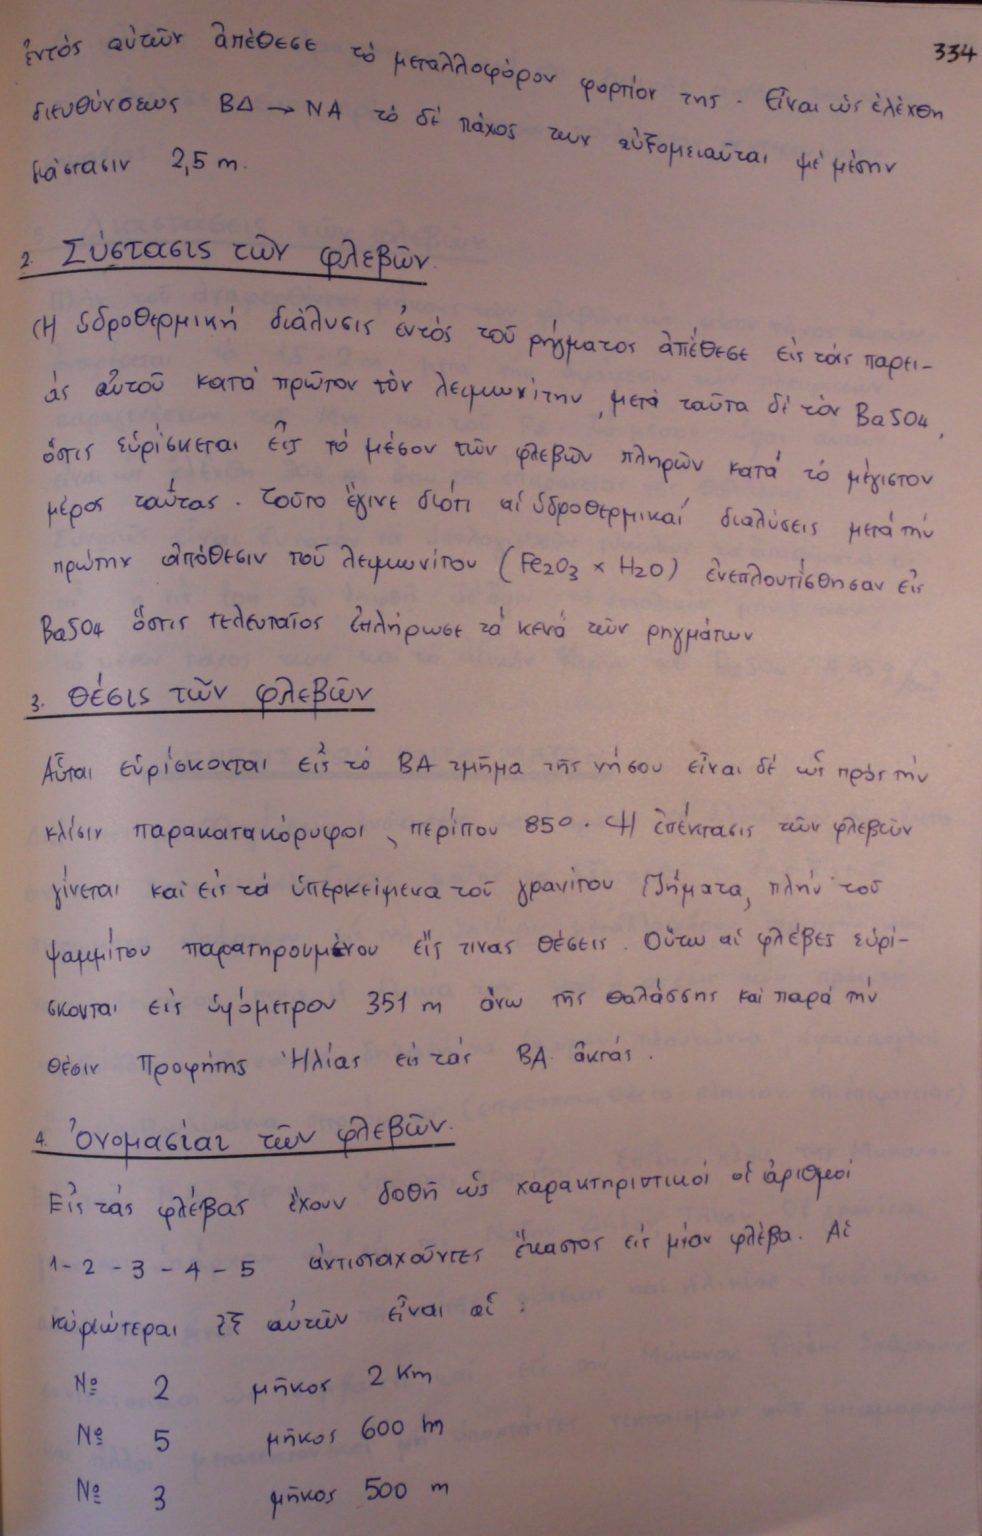 334
ἐντός αὐτῶν ἀπέθεσε τό μεταλλοφόρον φορτίον της. Εἶναι ὡς ἐλέχθη
διευθύνσεως ΒΔ → ΝΑ τό δέ πάχος των αὐξομειοῦται μέ μέσην
διάστασιν 2,5 m.
2. Σύστασις τῶν φλεβῶν.
Ἡ ὑδροθερμική διάλυσις ἐντός τοῦ ρήγματος ἀπέθεσε εἰς τάς παρει-
άς αὐτοῦ κατά πρῶτον τόν λειμωνίτην, μετά ταῦτα δέ τόν BaSO4,
ὅστις εὑρίσκεται εἰς τό μέσον τῶν φλεβῶν πληρῶν κατά τό μέγιστον
μέρος ταύτας. Τοῦτο ἔγινε διότι αἱ ὑδροθερμικαί διαλύσεις μετά τήν
πρώτην ἀπόθεσιν τοῦ λειμωνίτου (Fe2O3 x H2O) ἐνεπλουτίσθησαν εἰς
BaSO4 ὅστις τελευταῖος ἐπλήρωσε τά κενά τῶν ρηγμάτων
3. Θέσις τῶν φλεβῶν
Αὗται εὑρίσκονται εἰς τό ΒΑ τμῆμα τῆς νήσου εἶναι δέ ὡς πρός τήν
κλίσιν παρακατακόρυφοι, περίπου 85º. Ἡ ἐπέκτασις τῶν φλεβῶν
γίνεται καί εἰς τά ὑπερκείμενα τοῦ γρανίτου Ιζήματα, πλήν τοῦ
ψαμμίτου παρατηρουμένου εἰς τινας θέσεις. Οὕτω αἱ φλέβες εὑρί-
σκονται εἰς ὑψόμετρον 351 m ἄνω τῆς θαλάσσης καί παρά τήν
θέσιν Προφήτης Ἠλίας εἰς τάς ΒΑ ἀκτάς.
4. Ὀνομασίαι τῶν φλεβῶν.
Εἰς τάς φλέβας ἔχουν δοθῆ ὡς χαρακτηριστικοί οἱ ἀριθμοί
1 - 2 - 3 - 4 - 5 ἀντιστοιχοῦντες ἕκαστος εἰς μίαν φλέβα. Αἱ
κυριώτεραι ἐξ αὐτῶν εἶναι αἱ :
Nº 2 μῆκος 2 Km
Nº 5 μῆκος 600 m
Nº 3 μῆκος 500 m